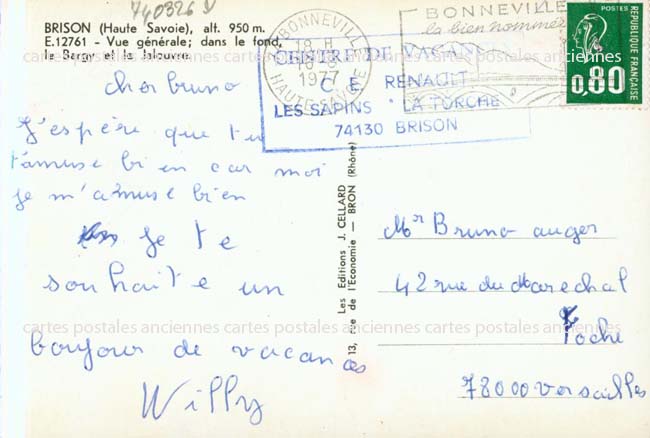 740326 V
BRISON (Haute Savoie), alt. 950 m.
E.12761 - Vue générale; dans le fond,
le Bargy et la Jalouvre.
BONNEVILLE
18 H
1977
HAUTE-SAVOIE
BONNEVILLE
la bien nommée
POSTES
0,80
REPUBLIQUE FRANÇAISE
CENTRE DE VACAN
C. E. RENAULT
LES SAPINS " LA TORCHE
74130 BRISON
cher bruno
J'espère que tu
t'amuse bien car moi
je m'amuse bien
Je te
souhaite un
bonjour de vacances
Willy
13, rue de l'Economie — BRON (Rhône)
Les Editions J. CELLARD
Mr Bruno auger
42 rue du Marechal
Foche
78000 versailles
cartes postales anciennes cartes postales anciennes cartes postales anciennes
cartes postales anciennes cartes postales anciennes cartes postales anciennes